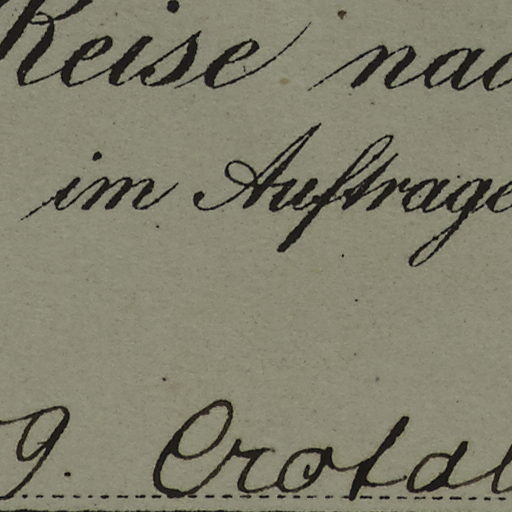 Reise nac
im Auftrage
9. Crotal